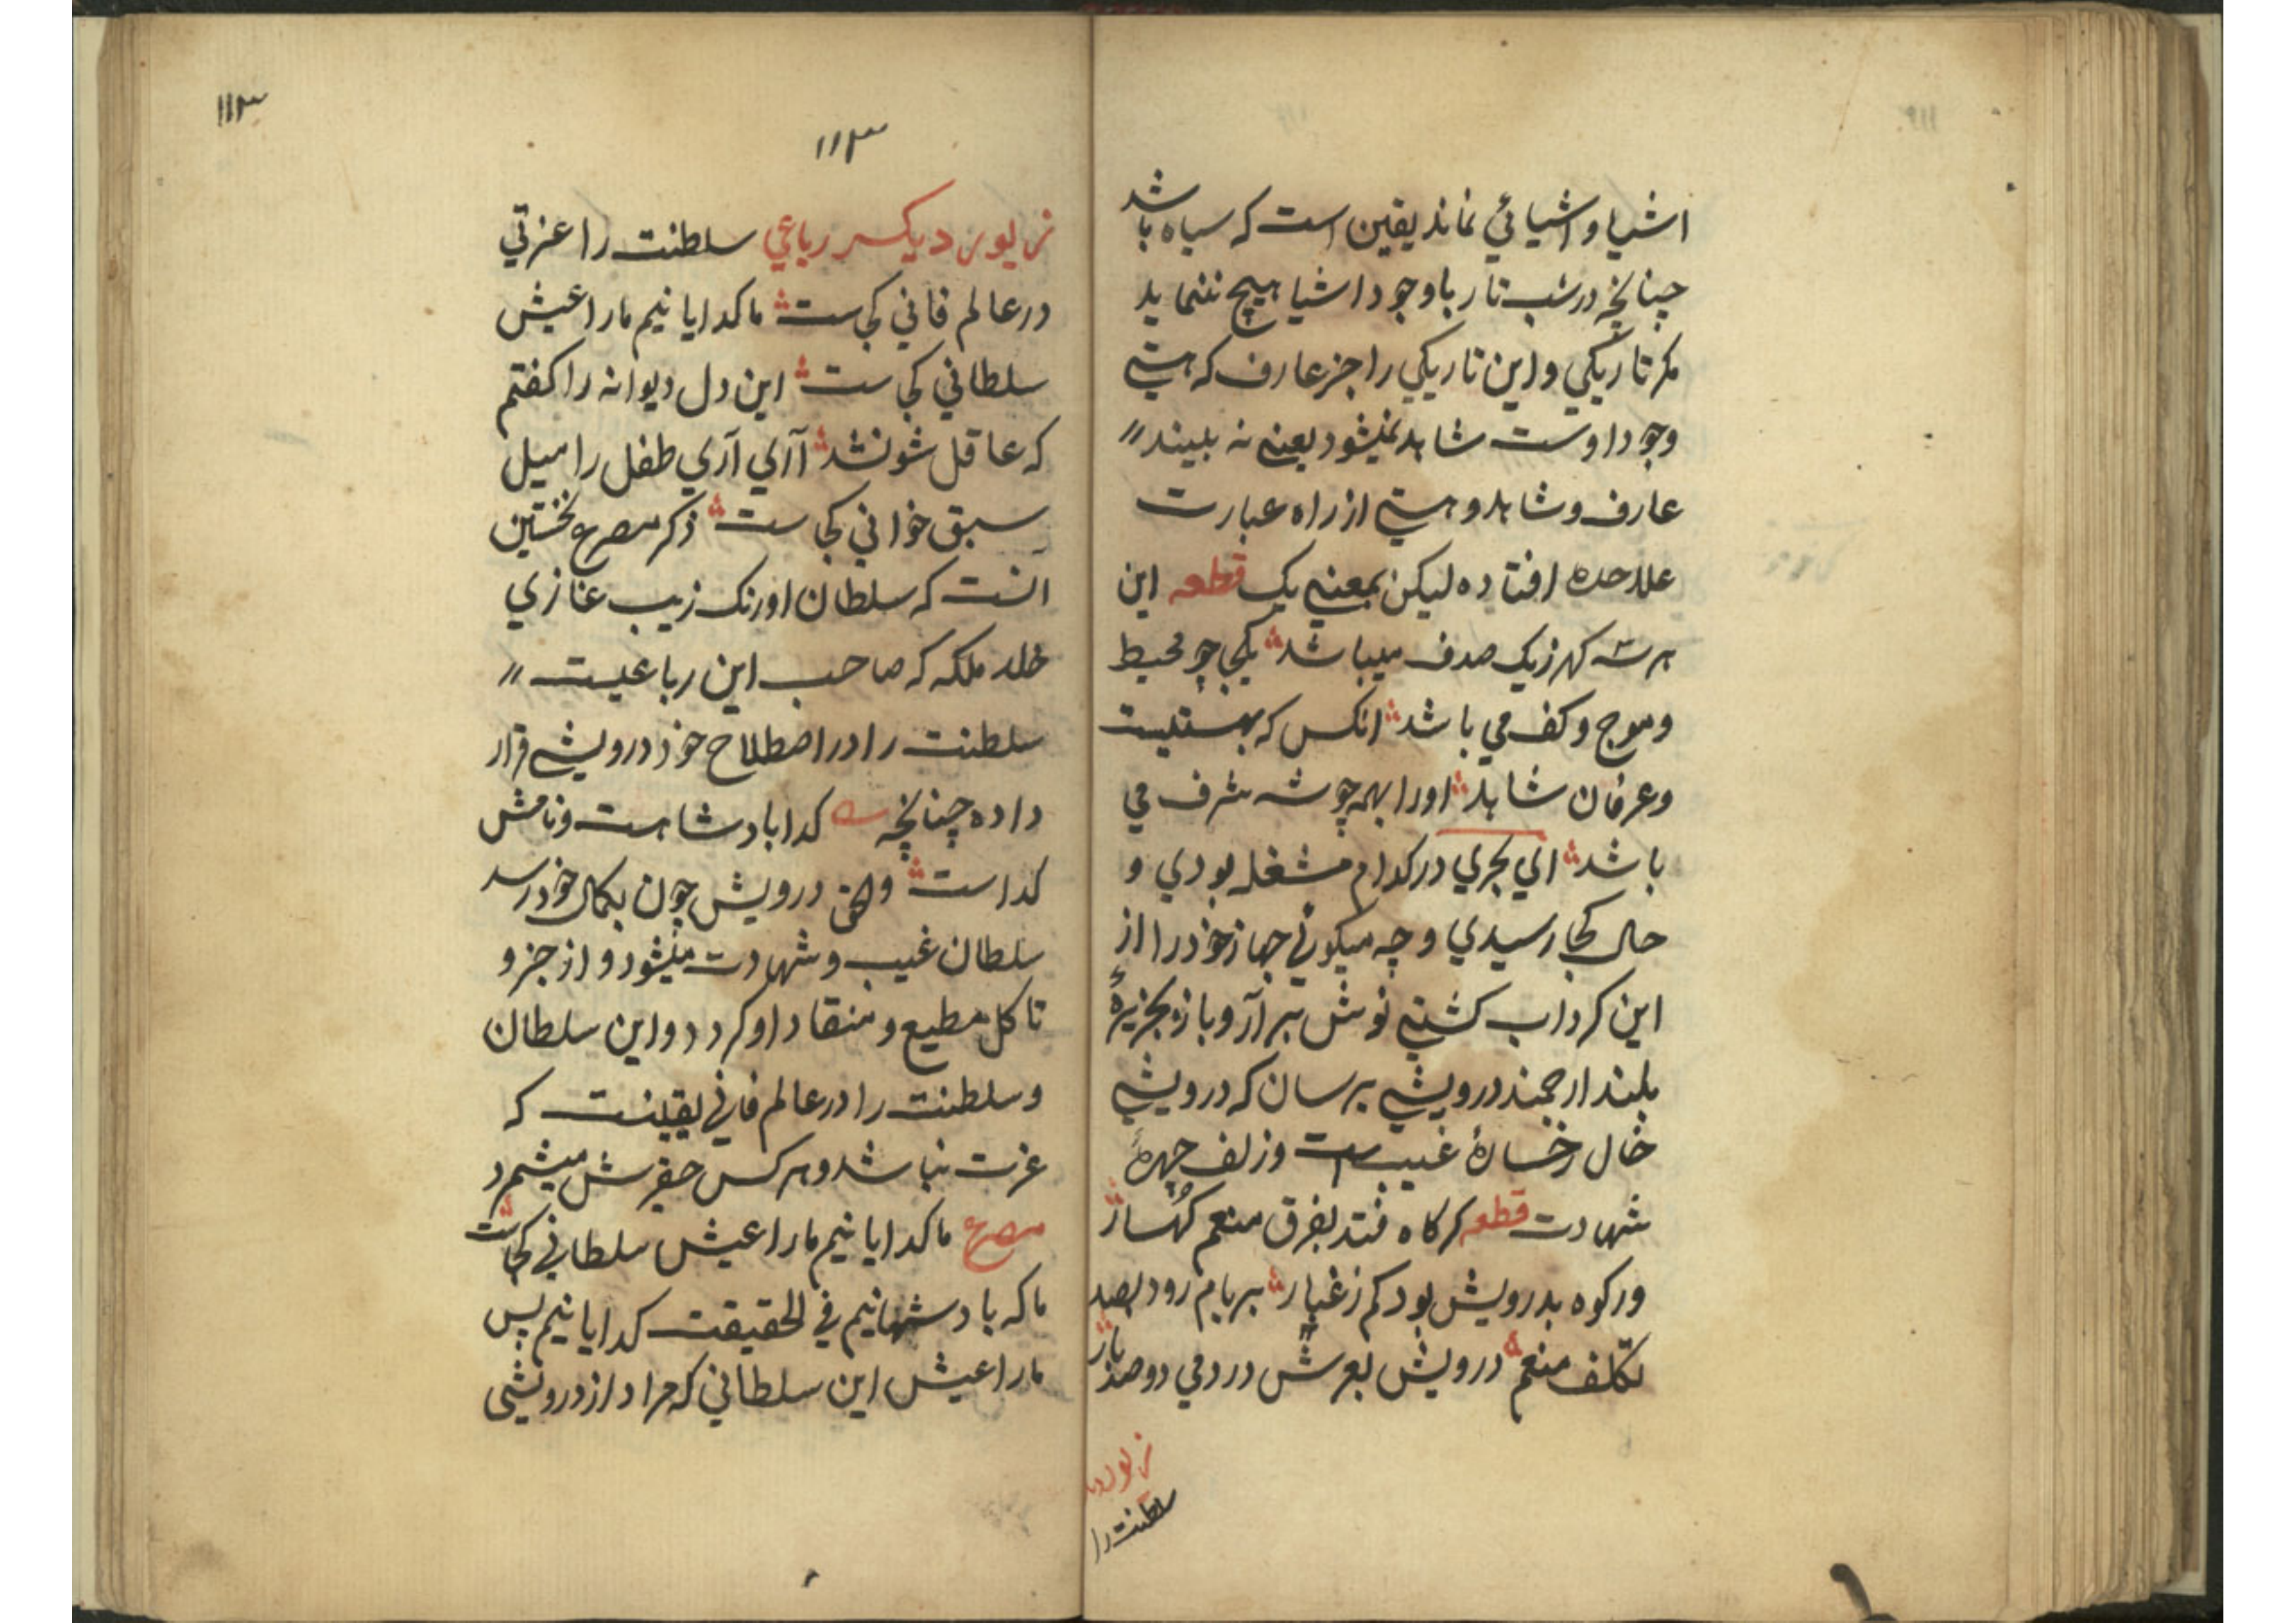 اشیا و اشیائی نماند یقین است که سیاه باشد
چنانچه در شب تار باوجود اشیا هیچ ننماید
مکر تاریکی و این تاریکی را جز عارف که هستی
وجود اوست شاهد نمیشود یعنی نه بیند
عارف و شاهد و هستی از راه عبارت
علاحده افتاده لیکن بمعنی یک قطعه این
هر سه کهر زیک صدف میباشد یکجا چو محیط
و موج و کف می باشد انکس که بهستیست
و عرفان شاهد اورا بهمه چو شه شرف می
باشد ای بحری در کدام مشغله بودی و
حال کجا رسیدی و چه میکوئی جهاز خود را از
این کرداب کشتی نوش برآر و بازبجزیرهٔ
بلند ارجمند درویشی برسان که درویشی
خال رخسارهٔ غیب است وزلف چهرهٔ
شهادت قطعه کر کاه فتد بفرق منعم کهسار
ور کوه بدرویش بود کم ز غبار بر بام رود بصد
تکلف منعم درویش بعرش در دمی دوصد بار
سلطنت را
۱۱۳
۱۱۳
زیور دیکر رباعی سلطنت را عزتی
در عالم فانی کجاست ما کدایانیم مارا عیش
سلطانی کجاست این دل دیوانه را کفتم
که عاقل شو نشد آری آری طفل را میل
سبق خوانی کجاست ذکر مصرع نخستین
آنست که سلطان اورنک زیب غازی
خلد ملکه که صاحب این رباعیست
سلطنت را در اصطلاح خود درویشی قرار
داده چنانچه کدا بادشاهست و نامش
کداست والحق درویش چون بکمال خود رسد
سلطان غیب و شهادت میشود و از جزو
تا کل مطیع و منقاد او کردد و این سلطان
و سلطنت را در عالم فانی یقینست که
عزت نباشد و هرکس حقیرش میشمرد
مصرع ما کدایانیم مارا عیش سلطانی کجاست
ما که بادشهانیم فی الحقیقت کدایانیم پس
مارا عیش این سلطانی که مراد از درویشی